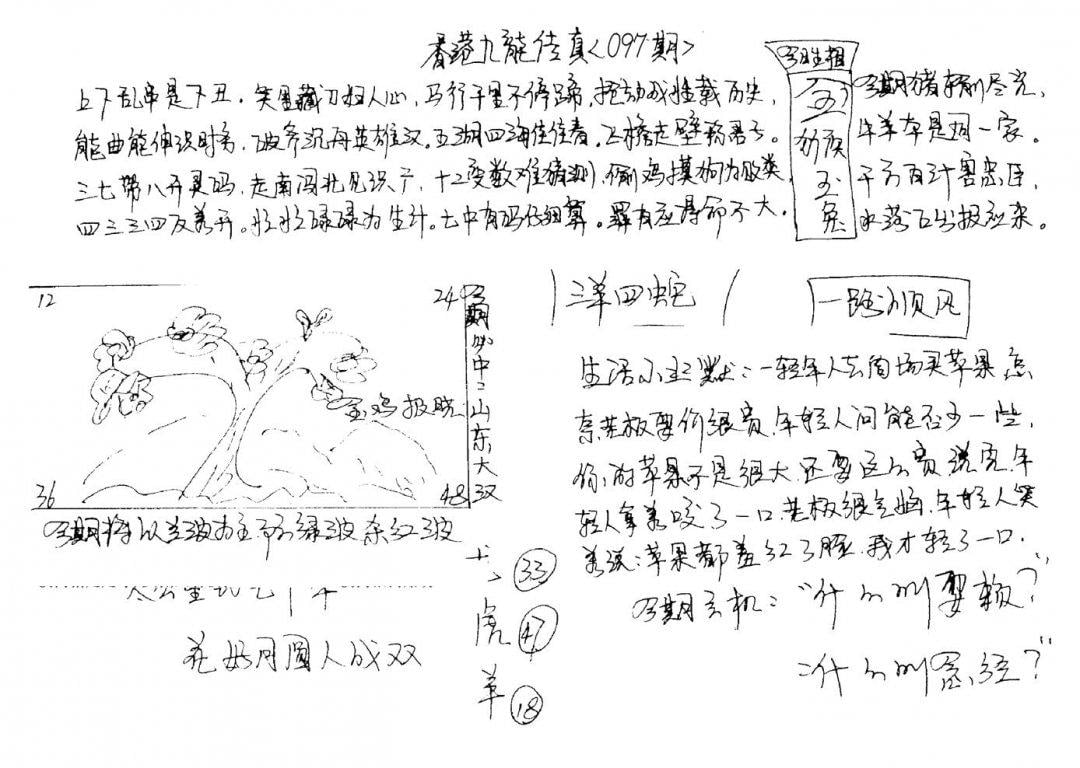 香港九龍传真<097期>
上下乱串是下丑．笑里藏刀扫人心，马行千里不停蹄，摇动战挂载历史，
能曲能伸识时务，破斧沉舟英雄汉。五湖四海佳佳春。上檐走壁称君子。
三七带八开灵码，走南闯北见识广，十二变数难猜测，偷鸡摸狗为败类，
四三三四反着开。忙忙碌碌为生计。七中有码仔细算。罪有应得命不大．
今期猪狗尽完，
牛羊本是同一家。
千方百计害忠臣，
水落石出报应来。
玉
兔
12
24
36
48
金鸡报晓
今期必中：山东大汉
三羊四蛇
一路顺风
生活小幽默：一年轻人去商场买苹果怎
奈老板要价很贵．年轻人问能否少一些，
你的苹果不是很大还要这么贵说完年
轻人拿着咬了一口．老板很气恼．年轻人笑
着说：苹果都羞红了脸，我才轻了一口．
今期玄机：“什么叫耍赖？”
：什么叫念经？”
今期特以兰波为主 绿波 杀红波
花好月圆人成双
33
虎 47
羊 18